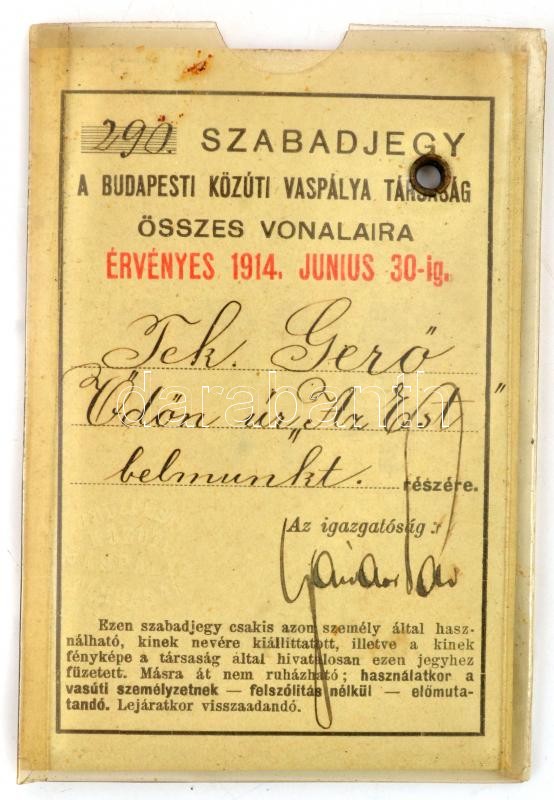 290. SZABADJEGY
A BUDAPESTI KÖZÚTI VASPÁLYA TÁRSASÁG
ÖSSZES VONALAIRA
ÉRVÉNYES 1914. JUNIUS 30-ig.
Tek. Gerő
Ödön úr „Az Est”
belmunkt. részére.
Az igazgatóság:
Ezen szabadjegy csakis azon személy által hasz-
nálható, kinek nevére kiállíttatott, illetve a kinek
fényképe a társaság által hivatalosan ezen jegyhez
füzetett. Másra át nem ruházható; használatkor a
vasúti személyzetnek — felszólítás nélkül — előmuta-
tandó. Lejáratkor visszaadandó.
darabanth